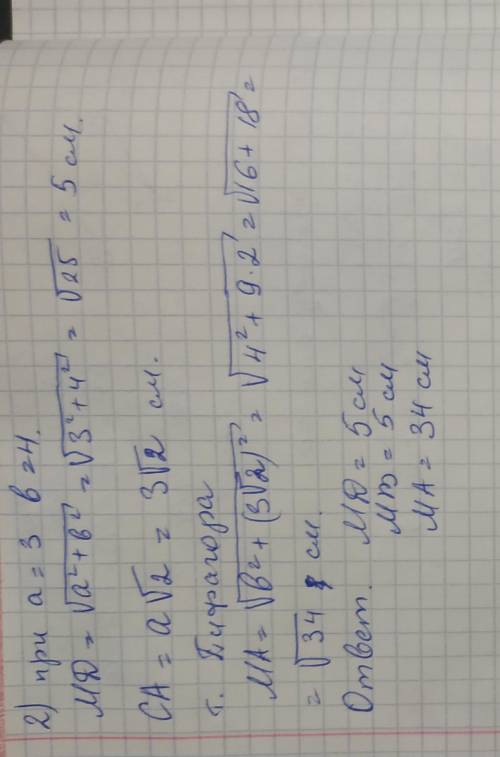 2) при a = 3 в = 4.
МД = √a² + в² = √3² + 4² = √25 = 5 см.
СА = a√2 = 3√2 см.
т. Пифагора
МА = √в² + (3√2)² = √4² + 9·2 = √16 + 18 =
= √34 см.
Ответ. МД = 5 см
МВ = 5 см
МА = 34 см